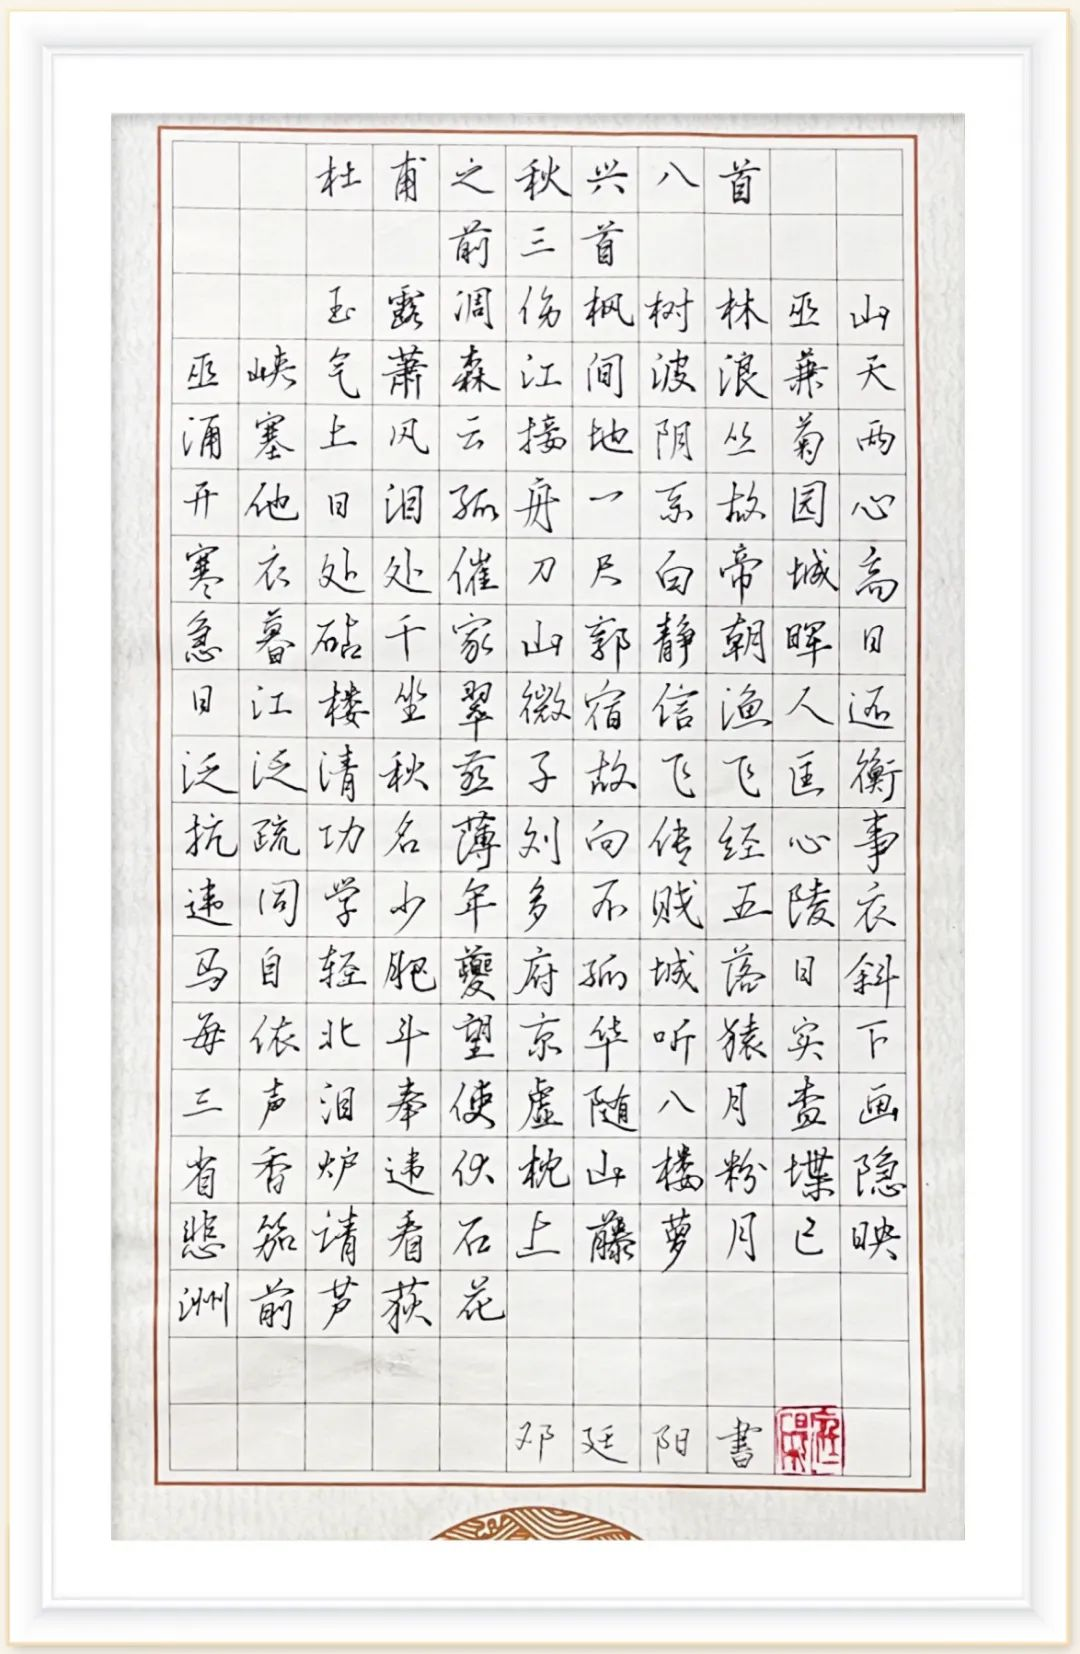 杜甫之秋兴八首
前三首
玉露凋伤枫树林巫山
巫峡气萧森江间波浪兼天
涌塞上风云接地阴丛菊两
开他日泪孤舟一系故园心
寒衣处处催刀尺白帝城高
急暮砧千家山郭静朝晖日
日江楼坐翠微宿信渔人还
泛泛清秋燕子故飞飞匡衡
抗疏功名薄刘向传经心事
违同学少年多不贱五陵衣
马自轻肥夔府孤城落日斜
每依北斗望京华听猿实下
三声泪奉使虚随八月查画
省香炉违伏枕山楼粉堞隐
悲笳请看石上藤萝月已映
洲前芦荻花
邓廷阳书